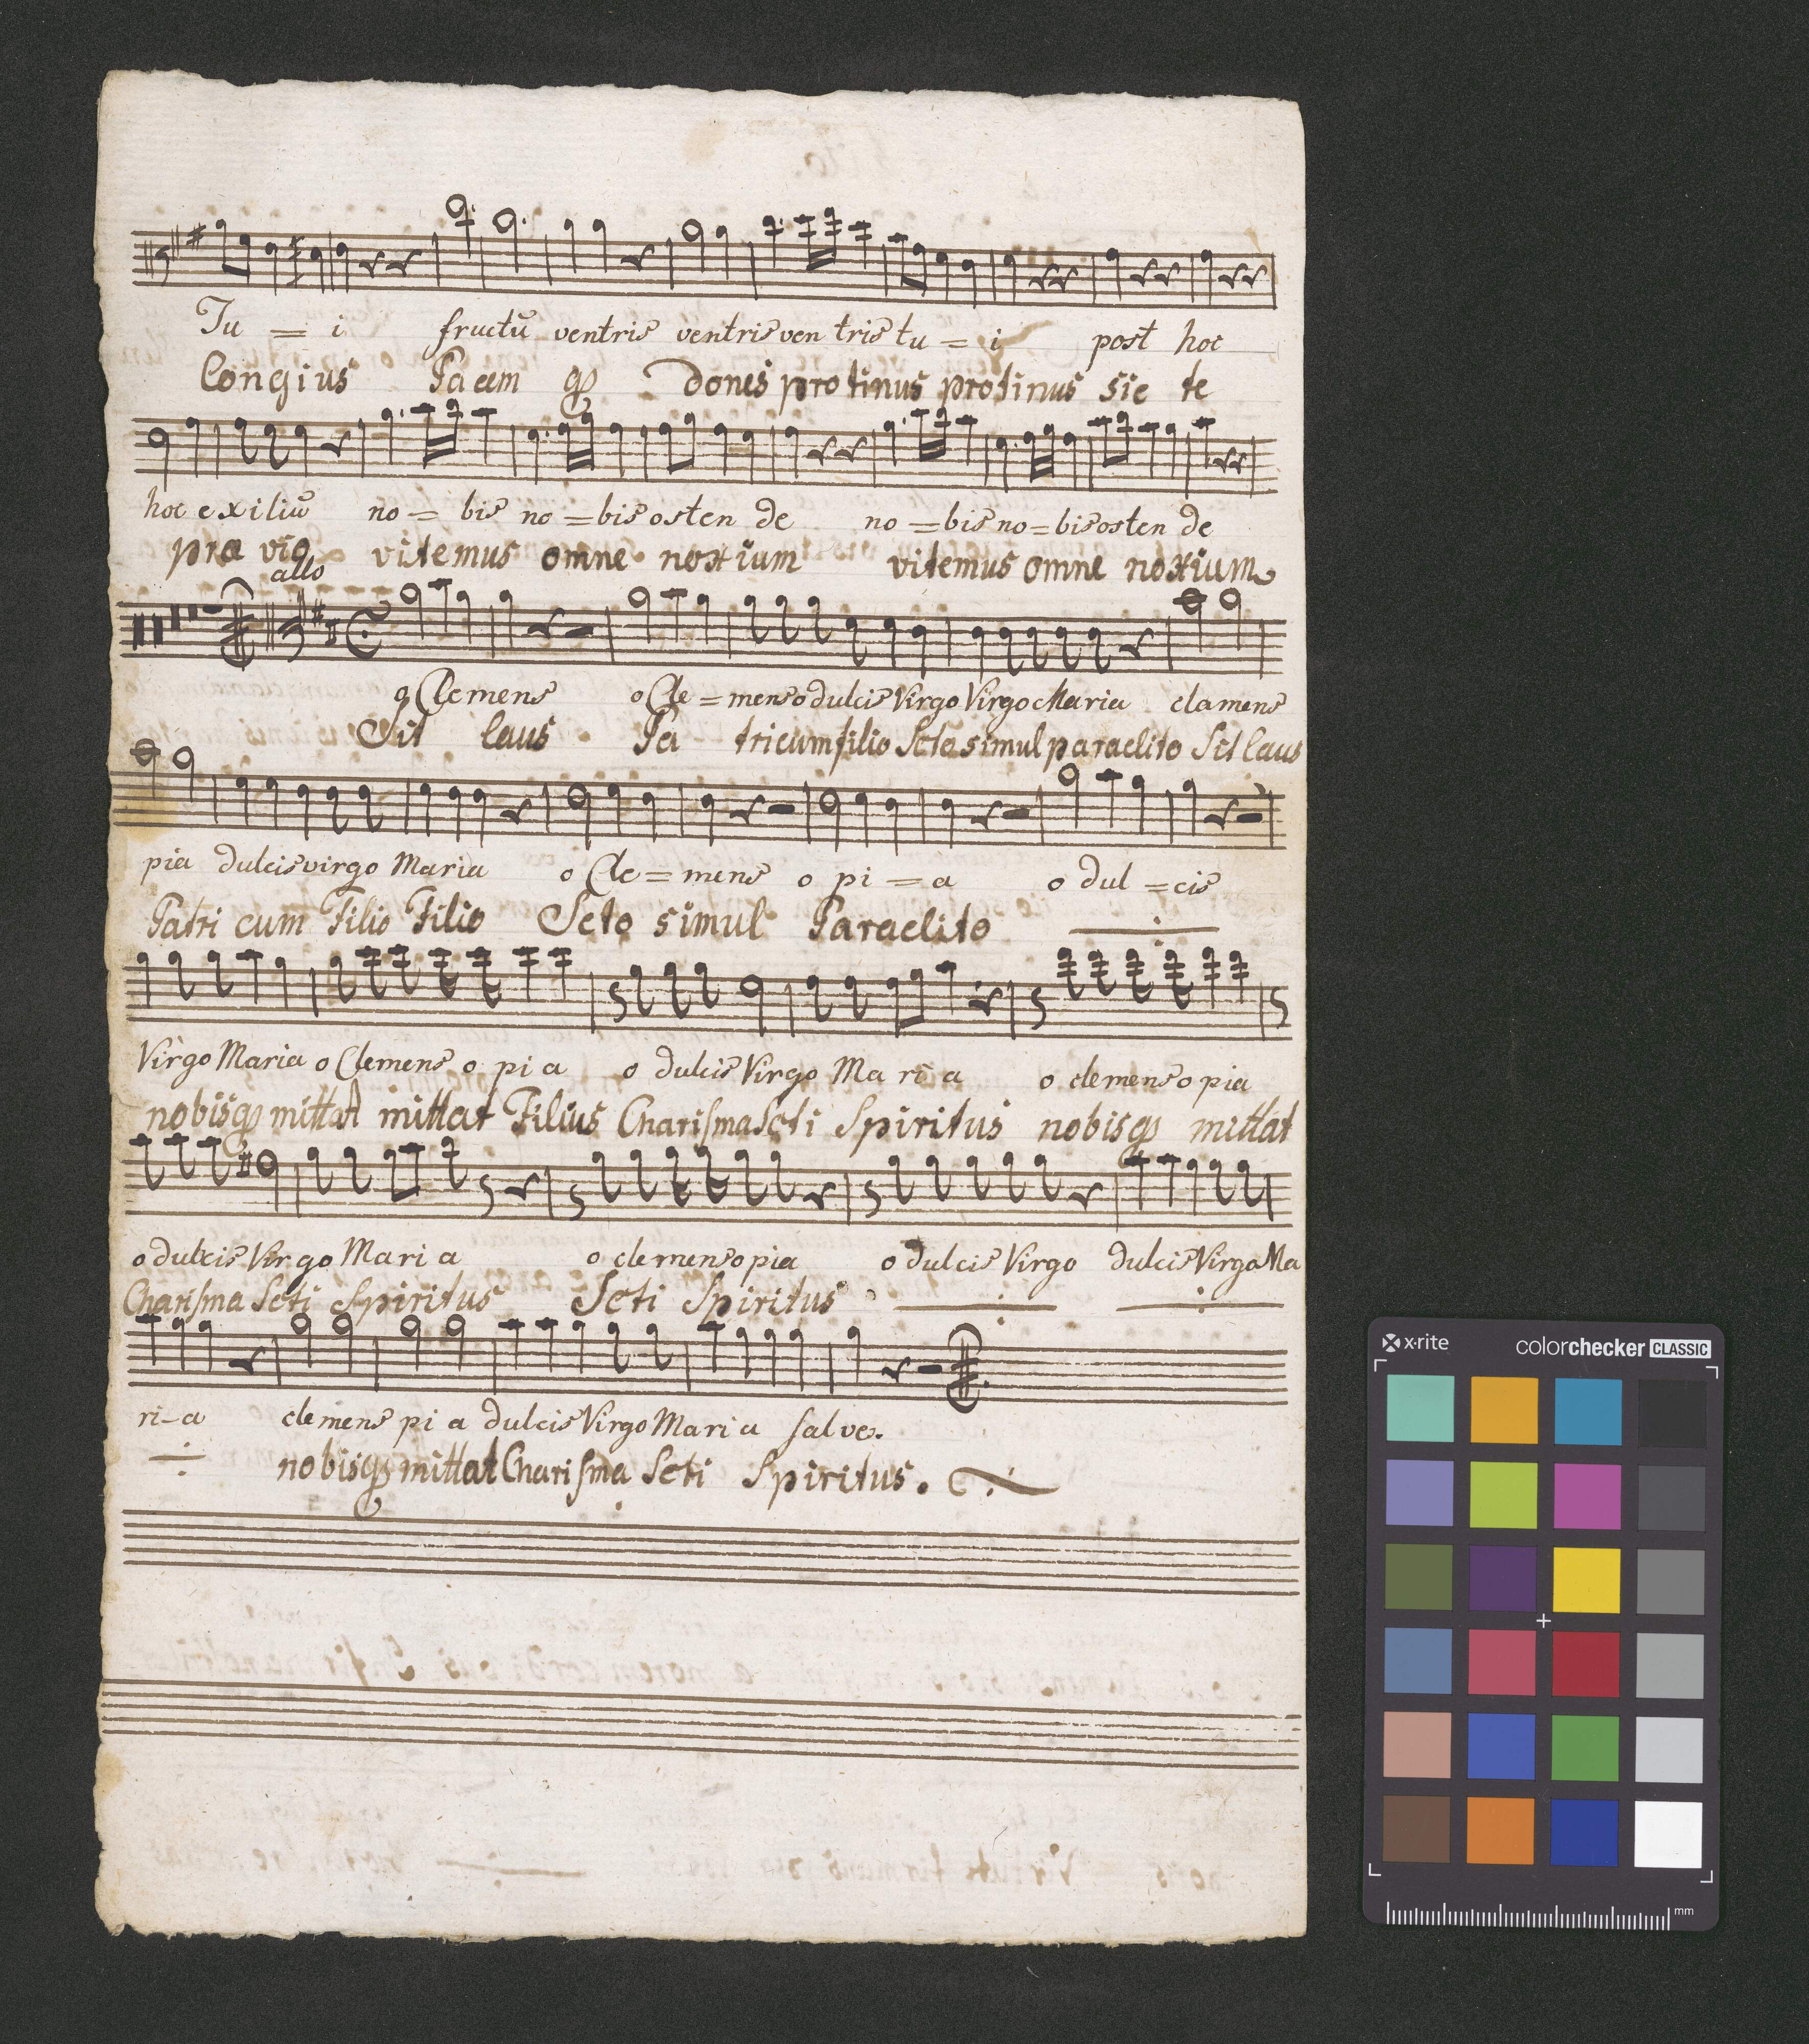 Tu = i fructū ventris ventris ven tris tu = i post hoc
Longius Pacem qȝ Dones protinus protinus sic te
hoc exiliū no = bis no = bis osten de no = bis no = bis osten de
præ vio vitemus omne noxium vitemus omne noxium
allo
o Clemens o Cle = mens o dulcis Virgo Virgo Maria clamens
Sit laus Pa tri cum filio Scto simul paraclito Sit laus
pia dulcis virgo Maria o Cle = mens o pi = a o dul = cis
Patri cum Filio Filio Scto simul Paraclito
Virgo Maria o Clemens o pi a o dulcis Virgo Ma ri a o clemens o pia
nobisqȝ mittat mittat Filius Charisma Scti Spiritus nobisqȝ mittat
o dulcis Virgo Mari a o clemens o pia o dulcis Virgo dulcis Virgo Ma
Charisma Scti Spiritus Scti Spiritus
ri-a clemens pi a dulcis Virgo Mari a salve.
nobisqȝ mittat Charisma Scti Spiritus.
x-rite colorchecker CLASSIC
mm